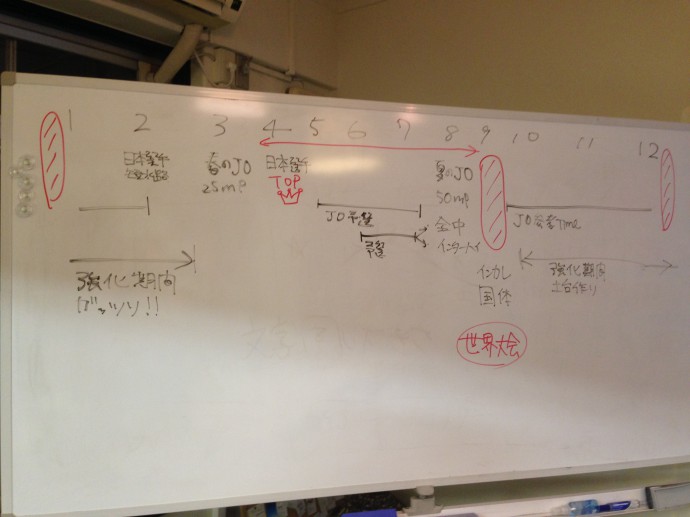 1 2 3 4 5 6 7 8 9 10 11 12
日本選手
春のJO
25mP
日本選手
TOP
夏のJO
50mP
全中
インターハイ
JO予選
予選
JO
Time
強化期間
ガッツリ!!
インカレ
国体
強化期間
土台作り
世界大会